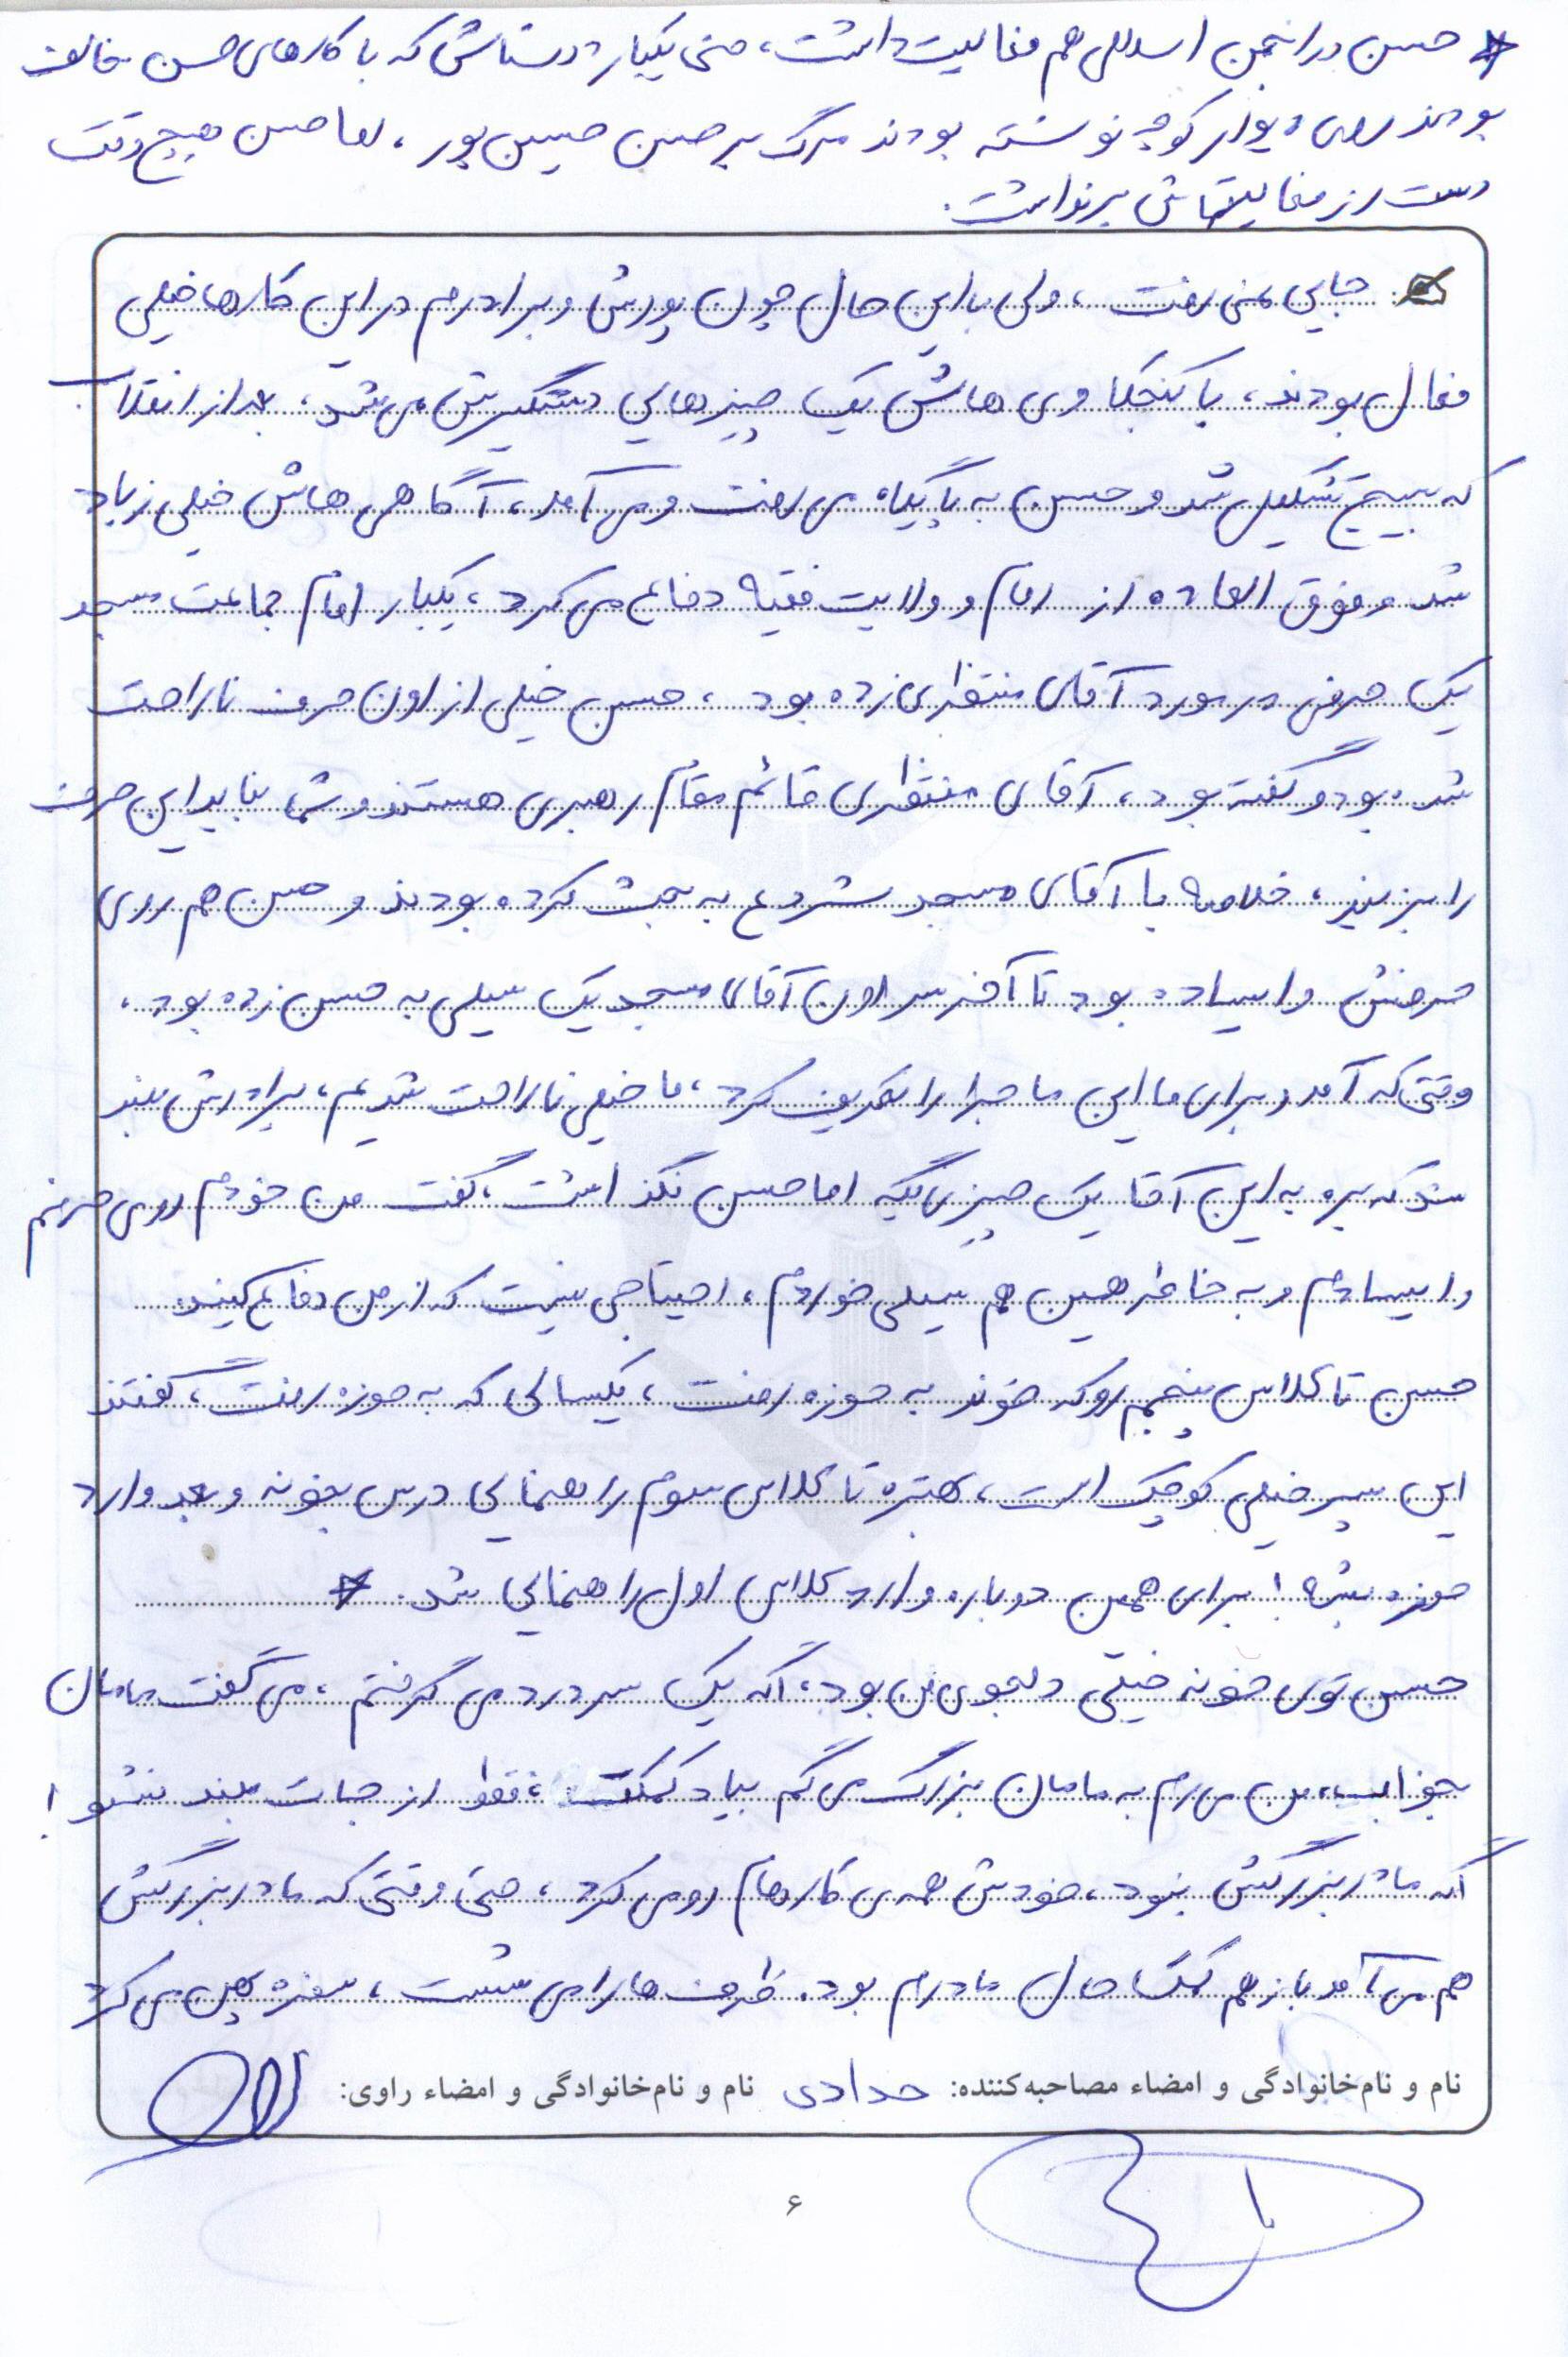 * حسن در انجمن اسلامی هم فعالیت داشت، حتی یکبار دوستاش که با کارهای حسن مخالف
بودند روی دیوار کوچه نوشته بودند مرگ بر حسن حسین پور، اما حسن هیچ وقت
دست از فعالیتهاش برنداشت.
جایی نمی رفت، ولی با این حال چون پدرش و برادرم در این کارها خیلی
فعال بودند، با کنجکاوی هاش یک چیزهایی دستگیرش می شد، بعد از انقلاب
که بسیج تشکیل شد و حسن به پایگاه می رفت و می آمد، آگاهی هاش خیلی زیاد
شد و فوق العاده از امام و ولایت فقیه دفاع می کرد، یکبار امام جماعت مسجد
یک حرفی در مورد آقای منتظری زده بود، حسن خیلی از اون حرف ناراحت
شده بود و گفته بود، آقای منتظری قائم مقام رهبری هستند و شما نباید این حرف
را بزنید، خلاصه با آقای مسجد شروع به بحث کرده بودند و حسن هم روی
حرفش وایساده بود تا آخر سر اون آقای مسجد یک سیلی به حسن زده بود،
وقتی که آمد و برای ما این ماجرا را تعریف کرد، ما خیلی ناراحت شدیم، برادرش بلند
شد که بره به این آقا یک چیزی بگه اما حسن نگذاشت، گفت من خودم روی حرفم
وایسادم و به خاطر همین هم سیلی خوردم، احتیاجی نیست که از من دفاع کنید.
حسن تا کلاس پنجم رو که خوند به حوزه رفت، یکسالی که به حوزه رفت، گفتند
این پسر خیلی کوچک است، بهتره تا کلاس سوم راهنمایی درس بخونه و بعد وارد
حوزه بشه! برای همین دوباره وارد کلاس اول راهنمایی شد. *
حسن توی خونه خیلی دلجوی من بود، اگه یک سردرد می گرفتم، می گفت مامان
بخواب، من می رم به مامان بزرگ می گم بیاد کمکت، فقط از جات بلند نشو!
اگه مادربزرگش نبود، خودش همه ی کارهام رو می کرد، حتی وقتی که مادربزرگش
هم می آمد باز هم کمک حال مادرم بود. ظرف ها را می شست، سفره پهن می کرد
نام و نام‌خانوادگی و امضاء مصاحبه‌کننده: حدادی نام و نام‌خانوادگی و امضاء راوی:
۶